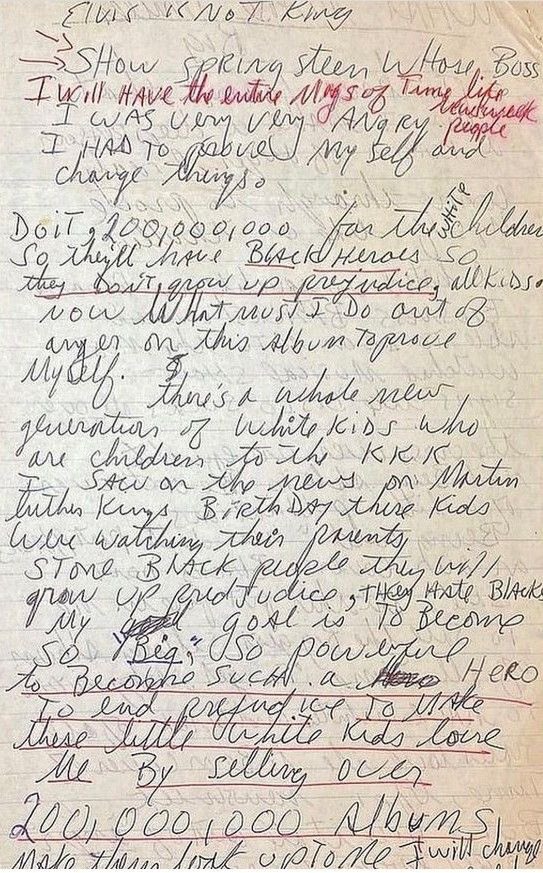 Elvis is Not King
Show Springsteen Whose Boss
I will HAVE the entire Mags of Time like
Newsweek
people
I WAS very very ANGRY
I HAD To prove My self and
change things.
Do it, 200,000,000 for the white children
So they'll have Black Heroes So
they Don't grow up prejudice, all Kids.
now What must I Do out of
anger on this Album To prove
My self.
there's a whole new
generation of white Kids who
are children to the KKK
I SAW on the news on Martin
Luther Kings BirthDAY these Kids
Were watching their parents
STONE BLACK people they will
grow up predjudice, they Hate Blacks
My goal is To Become
So "Big", So powerful
to Become Such a HERO
To end prejudice To Make
these little white Kids love
Me By selling over
200,000,000 Albums
Make them look up To Me I will change